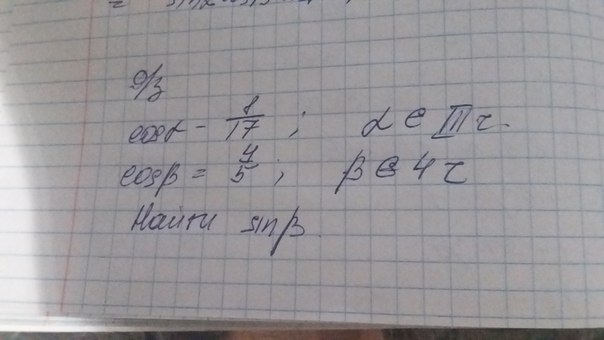 д/з
cos α - 8/17 ; α ∈ III ч.
cos β = 4/5 ; β ∈ 4 ч
Найти sin β.